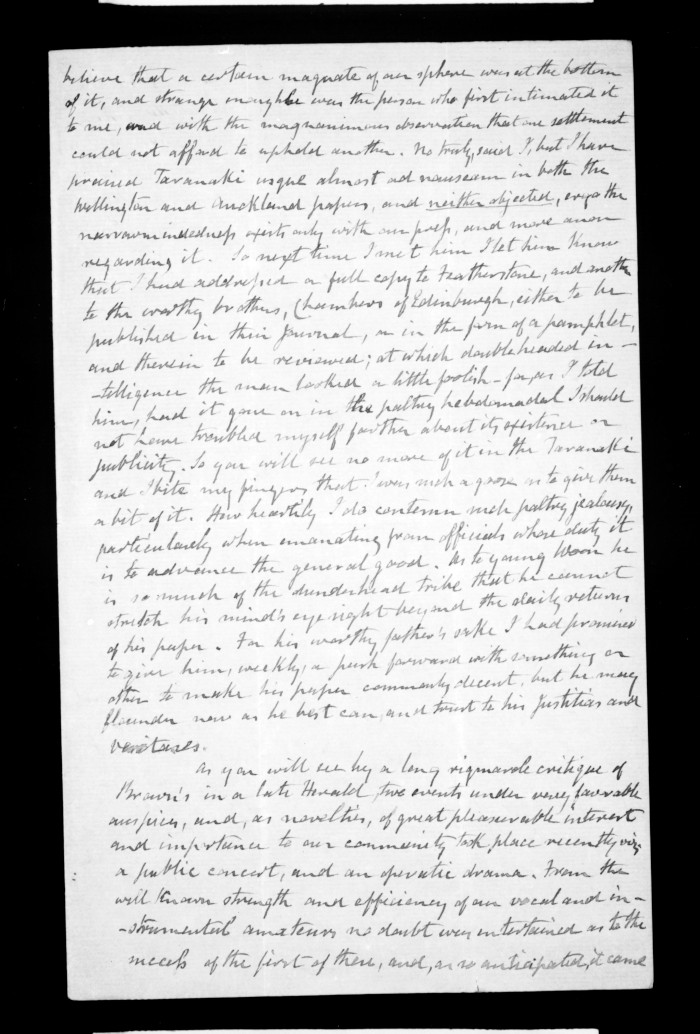 believe that a certain magnate of our sphere was at the bottom
of it, and strange enough he was the person who first intimated it
to me, and with the magnanimous observation that one settlement
could not afford to uphold another. No truly, said I, but I have
praised Taranaki usque almost ad nauseam in both the
Wellington and Auckland papers, and neither objected, ergo the
narrowmindedness exists only with our press, and more anon
regarding it. So next time I met him I let him know
that I had addressed a full copy to Featherstone, and another
to the worthy brothers, Chambers of Edinburgh, either to be
published in their Journal, or in the form of a pamphlet,
and therein to be reviewed; at which doubleheaded in-
-telligence the man looked a little foolish - for, as I told
him, had it gone on in the paltry hebdomadal I should
not have troubled myself farther about its existence or
publicity. So you will see no more of it in the Taranaki
and I bite my fingers that I was such a goose as to give them
a bit of it. How heartily I do contemn such paltry jealousy,
particularly when emanating from officials whose duty it
is to advance the general good. As to young Woon he
is so much of the dunderhead tribe that he cannot
stretch his mind's eye sight beyond the daily returns
of his paper. For his worthy father's sake I had promised
to give him, weekly, a push forward with something or
other to make his paper commonly decent, but he may
flounder now as he best can, and trust to his Justitias and
Veritases.
As you will see by a long rigmarole critique of
Brown's in a late Herald, two events under very favorable
auspices, and, as novelties, of great pleasurable interest
and importance to our community took place recently viz,
a public concert, and an operatic drama. From the
well known strength and efficiency of our vocal and in-
-strumental amateurs no doubt was entertained as to the
success of the first of these, and, as so anticipated, it came